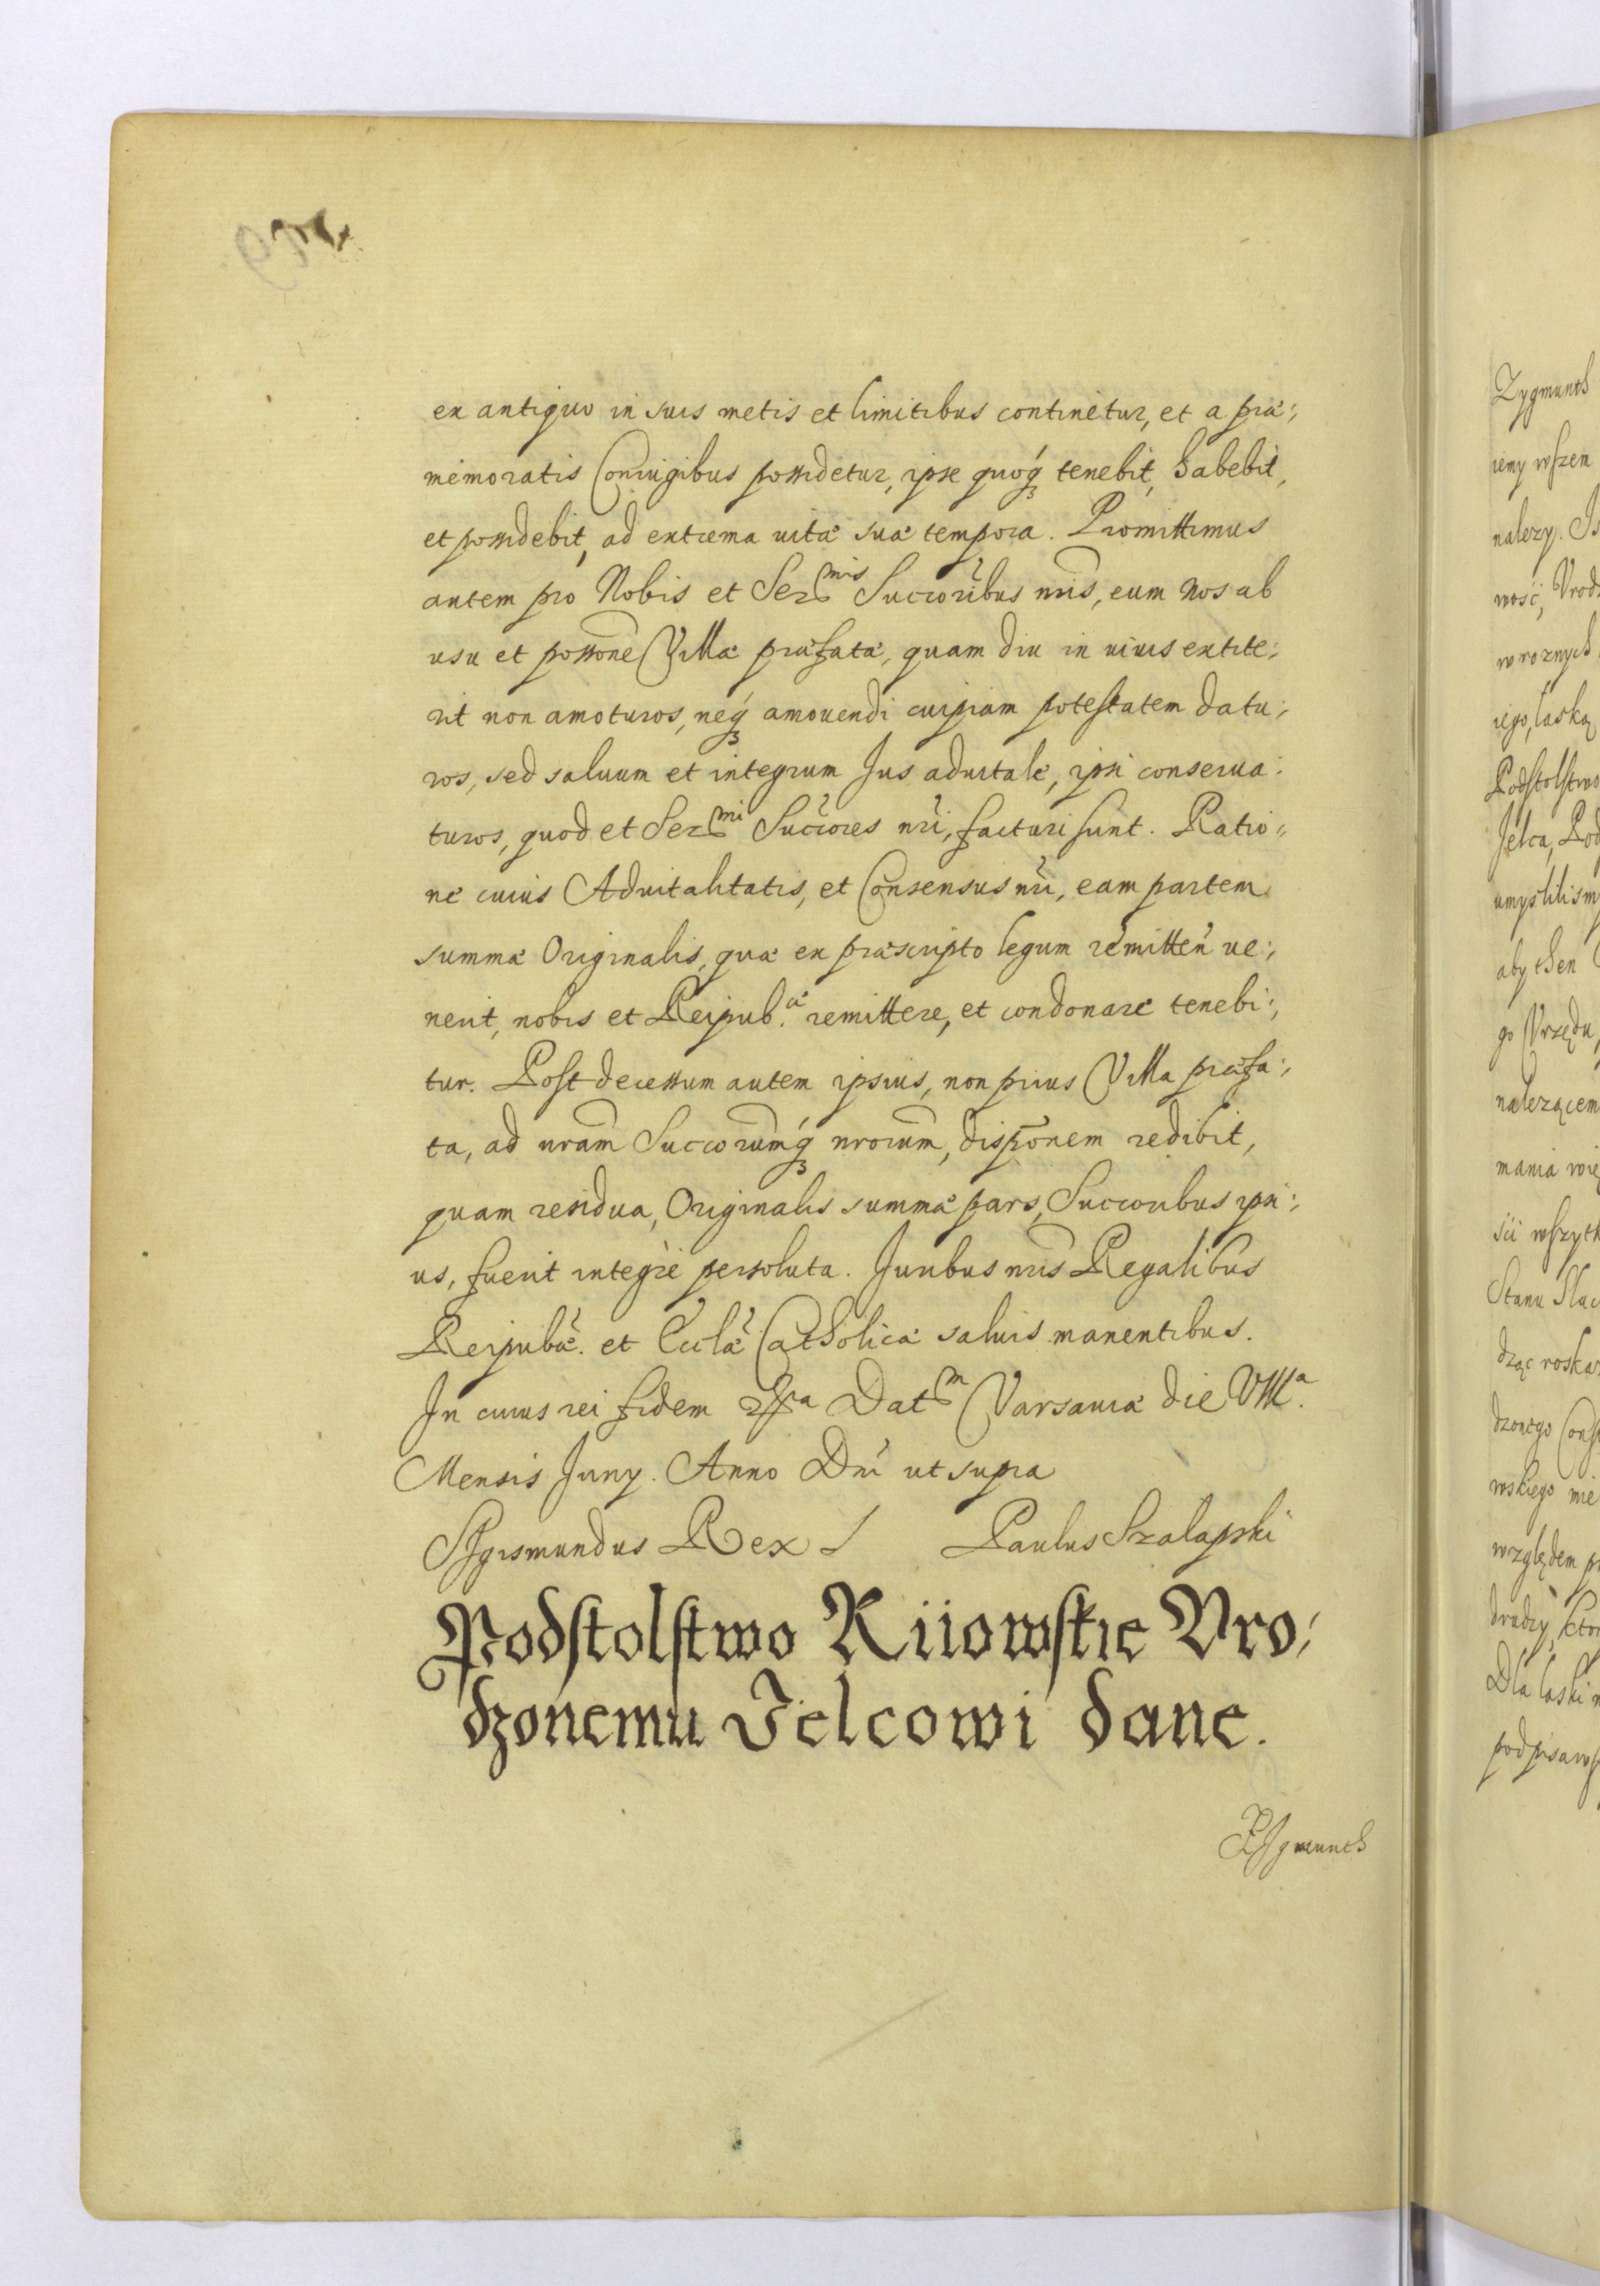 ex antiquo in suis metis et limitibus continetur, et a præ:,
memoratis Coniugibus possidetur, ipse quoq́ꝫ tenebit, habebit,
et possidebit, ad extrema uitæ suæ tempora. Promittimus
autem pro Nobis et Ser^mis Succoribus nris, eum nos ab
usu et possone Villæ præfatæ, quam diu in uiuis extite:,
rit non amoturos, neq́ꝫ amouendi cuipiam potestatem datu:,
ros, sed saluum et integrum Jus aduitale, ipsi conserua:
turos, quod et Ser^mi Succores nri, facturi sunt. Ratio:,
ne cuius Aduitalitatis, et Consensus nri, eam partem
summæ Originalis, quæ ex præscripto legum remitten ue:,
nerit, nobis et Reipub.^æ remittere, et condonare tenebi:,
tur. Post decessum autem ipsius, non prius Villa præfa:,
ta, ad nram Succorumq́ꝫ nrorum, disponem redibit,
quam residua, Originalis summæ pars, Succoribus ipsi:,
us, fuerit integrè persoluta. Juribus nris Regalibus
Reipubæ. et Ecclæ Catholicæ saluis manentibus.
In cuius rei fidem Dat^m Varsauiæ die VIII^a.
Mensis Juny. Anno Dni ut supra
Sigismundus Rex Paulus Szalapski
Podstolstwo Kiiowskie Vro:,
dzonemu Jelcowi dane.
Zygmunth
Zygmunth
iemy wszem
nalezy. Js
wość, Vrodz
w roznych
iego, laską
Podstolstwo
Jelca, Pod
umyslilism
aby then
go Vrzędu,
nalezącem
mania wię
sci wszytk
Stanu Slac
dząc roskaz
dzonego Const
wskiego mie
względem pr
drudzy, ktor
Dla laski n
podpisaws